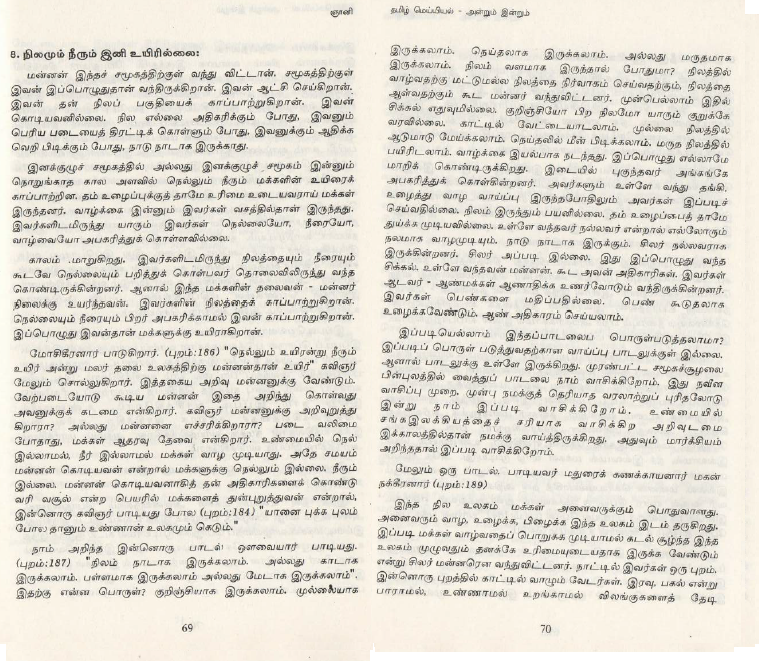 ஞானி
8. நிலமும் நீரும் இனி உயிரில்லை:
மன்னன் இந்தச் சமூகத்திற்குள் வந்து விட்டான். சமூகத்திற்குள்
இவன் இப்பொழுதுதான் வந்திருக்கிறான். இவன் ஆட்சி செய்கிறான்.
இவன் தன் நிலப் பகுதியைக் காப்பாற்றுகிறான். இவன்
கொடியவனில்லை. நில எல்லை அதிகரிக்கும் போது, இவனும்
பெரிய படையைத் திரட்டிக் கொள்ளும் போது, இவனுக்கும் ஆதிக்க
வெறி பிடிக்கும் போது, நாடு நாடாக இருக்காது.
இனக்குழுச் சமூகத்தில் அல்லது இனக்குழுச் சமூகம் இன்னும்
நொறுங்காத கால அளவில் நெல்லும் நீரும் மக்களின் உயிரைக்
காப்பாற்றின. தம் உழைப்புக்குத் தாமே உரிமை உடையவராய் மக்கள்
இருந்தனர். வாழ்க்கை இன்னும் இவர்கள் வசத்தில்தான் இருந்தது.
இவர்களிடமிருந்து யாரும் இவர்கள் நெல்லையோ, நீரையோ,
வாழ்வையோ அபகரித்துக் கொள்ளவில்லை.
காலம் மாறுகிறது. இவர்களிடமிருந்து நிலத்தையும் நீரையும்
கூடவே நெல்லையும் பறித்துக் கொள்பவர் தொலைவிலிருந்து வந்த
கொண்டிருக்கின்றனர். ஆனால் இந்த மக்களின் தலைவன் - மன்னர்
நிலைக்கு உயர்ந்தவன். இவர்களின் நிலத்தைக் காப்பாற்றுகிறான்.
நெல்லையும் நீரையும் பிறர் அபகரிக்காமல் இவன் காப்பாற்றுகிறான்.
இப்பொழுது இவன்தான் மக்களுக்கு உயிராகிறான்.
மோசிகீரனார் பாடுகிறார். (புறம்:186) "நெல்லும் உயிரன்று நீரும்
உயிர் அன்று மலர் தலை உலகத்திற்கு மன்னன்தான் உயிர்" கவிஞர்
மேலும் சொல்லுகிறார். இத்தகைய அறிவு மன்னனுக்கு வேண்டும்.
வேற்படையோடு கூடிய மன்னன் இதை அறிந்து கொள்வது
அவனுக்குக் கடமை என்கிறார். கவிஞர் மன்னனுக்கு அறிவுறுத்து
கிறாரா? அல்லது மன்னனை எச்சரிக்கிறாரா? படை வலிமை
போதாது, மக்கள் ஆதரவு தேவை என்கிறார். உண்மையில் நெல்
இல்லாமல், நீர் இல்லாமல் மக்கள் வாழ முடியாது. அதே சமயம்
மன்னன் கொடியவன் என்றால் மக்களுக்கு நெல்லும் இல்லை. நீரும்
இல்லை. மன்னன் கொடியவனாகித் தன் அதிகாரிகளைக் கொண்டு
வரி வசூல் என்ற பெயரில் மக்களைத் துன்புறுத்துவன் என்றால்,
இன்னொரு கவிஞர் பாடியது போல (புறம்:184) "யானை புக்க புலம்
போல தானும் உண்ணான் உலகமும் கெடும்."
நாம் அறிந்த இன்னொரு பாடல் ஔவையார் பாடியது.
(புறம்:187) "நிலம் நாடாக இருக்கலாம். அல்லது காடாக
இருக்கலாம். பள்ளமாக இருக்கலாம் அல்லது மேடாக இருக்கலாம்".
இதற்கு என்ன பொருள்? குறிஞ்சியாக இருக்கலாம். முல்லையாக
69
தமிழ் மெய்யியல் - அன்றும் இன்றும்
இருக்கலாம். நெய்தலாக இருக்கலாம். அல்லது மருதமாக
இருக்கலாம். நிலம் வளமாக இருந்தால் போதுமா? நிலத்தில்
வாழ்வதற்கு மட்டுமல்ல நிலத்தை நிர்வாகம் செய்வதற்கும், நிலத்தை
ஆள்வதற்கும் கூட மன்னர் வந்துவிட்டனர். முன்பெல்லாம் இதில்
சிக்கல் எதுவுமில்லை. குறிஞ்சியோ பிற நிலமோ யாரும் குறுக்கே
வரவில்லை. காட்டில் வேட்டையாடலாம். முல்லை நிலத்தில்
ஆடுமாடு மேய்க்கலாம். நெய்தலில் மீன் பிடிக்கலாம். மருத நிலத்தில்
பயிரிடலாம். வாழ்க்கை இயல்பாக நடந்தது. இப்பொழுது எல்லாமே
மாறிக் கொண்டிருக்கிறது. இடையில் புகுந்தவர் அங்கங்கே
அபகரித்துக் கொள்கின்றனர். அவர்களும் உள்ளே வந்து தங்கி,
உழைத்து வாழ வாய்ப்பு இருந்தபோதிலும் அவர்கள் இப்படிச்
செய்வதில்லை. நிலம் இருந்தும் பயனில்லை. தம் உழைப்பைத் தாமே
துய்க்க முடியவில்லை. உள்ளே வந்தவர் நல்லவர் என்றால் எல்லோரும்
நலமாக வாழமுடியும். நாடு நாடாக இருக்கும். சிலர் நல்லவராக
இருக்கின்றனர். சிலர் அப்படி இல்லை. இது இப்பொழுது வந்த
சிக்கல். உள்ளே வந்தவன் மன்னன். கூட அவன் அதிகாரிகள். இவர்கள்
ஆடவர் - ஆண்மக்கள் ஆணாதிக்க உணர்வோடும் வந்திருக்கின்றனர்.
இவர்கள் பெண்களை மதிப்பதில்லை. பெண் கூடுதலாக
உழைக்கவேண்டும். ஆண் அதிகாரம் செய்யலாம்.
இப்படியெல்லாம் இந்தப்பாடலைப் பொருள்படுத்தலாமா?
இப்படிப் பொருள் படுத்துவதற்கான வாய்ப்பு பாடலுக்குள் இல்லை.
ஆனால் பாடலுக்கு உள்ளே இருக்கிறது. முரண்பட்ட சமூகச்சூழலை
பின்புலத்தில் வைத்துப் பாடலை நாம் வாசிக்கிறோம். இது நவீன
வாசிப்பு முறை. முன்பு நமக்குத் தெரியாத வரலாற்றுப் புரிதலோடு
இன்று நாம் இப்படி வாசிக்கிறோம். உண்மையில்
சங்கஇலக்கியத்தைச் சரியாக வாசிக்கிற அறிவுடமை
இக்காலத்தில்தான் நமக்கு வாய்த்திருக்கிறது. அதுவும் மார்க்சியம்
அறிந்ததால் இப்படி வாசிக்கிறோம்.
மேலும் ஒரு பாடல். பாடியவர் மதுரைக் கணக்காயனார் மகன்
நக்கீரனார் (புறம்:189)
இந்த நில உலகம் மக்கள் அனைவருக்கும் பொதுவானது.
அனைவரும் வாழ, உழைக்க, பிழைக்க இந்த உலகம் இடம் தருகிறது.
இப்படி மக்கள் வாழ்வதைப் பொறுக்க முடியாமல் கடல் சூழ்ந்த இந்த
உலகம் முழுவதும் தனக்கே உரிமையுடையதாக இருக்க வேண்டும்
என்று சிலர் மன்னரென வந்துவிட்டனர். நாட்டில் இவர்கள் ஒரு புறம்.
இன்னொரு புறத்தில் காட்டில் வாழும் வேடர்கள். இரவு, பகல் என்று
பாராமல், உண்ணாமல் உறங்காமல் விலங்குகளைத் தேடி
70